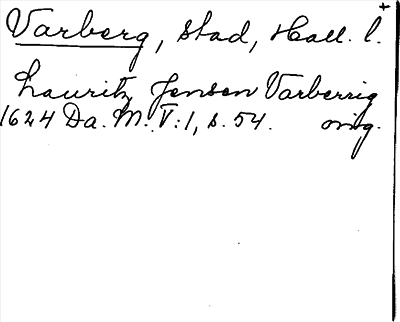 Varberg, stad, Hall. l. +
Lauritz Jensen Varberrig
1624 Da. M. V:1, s. 54. orig.